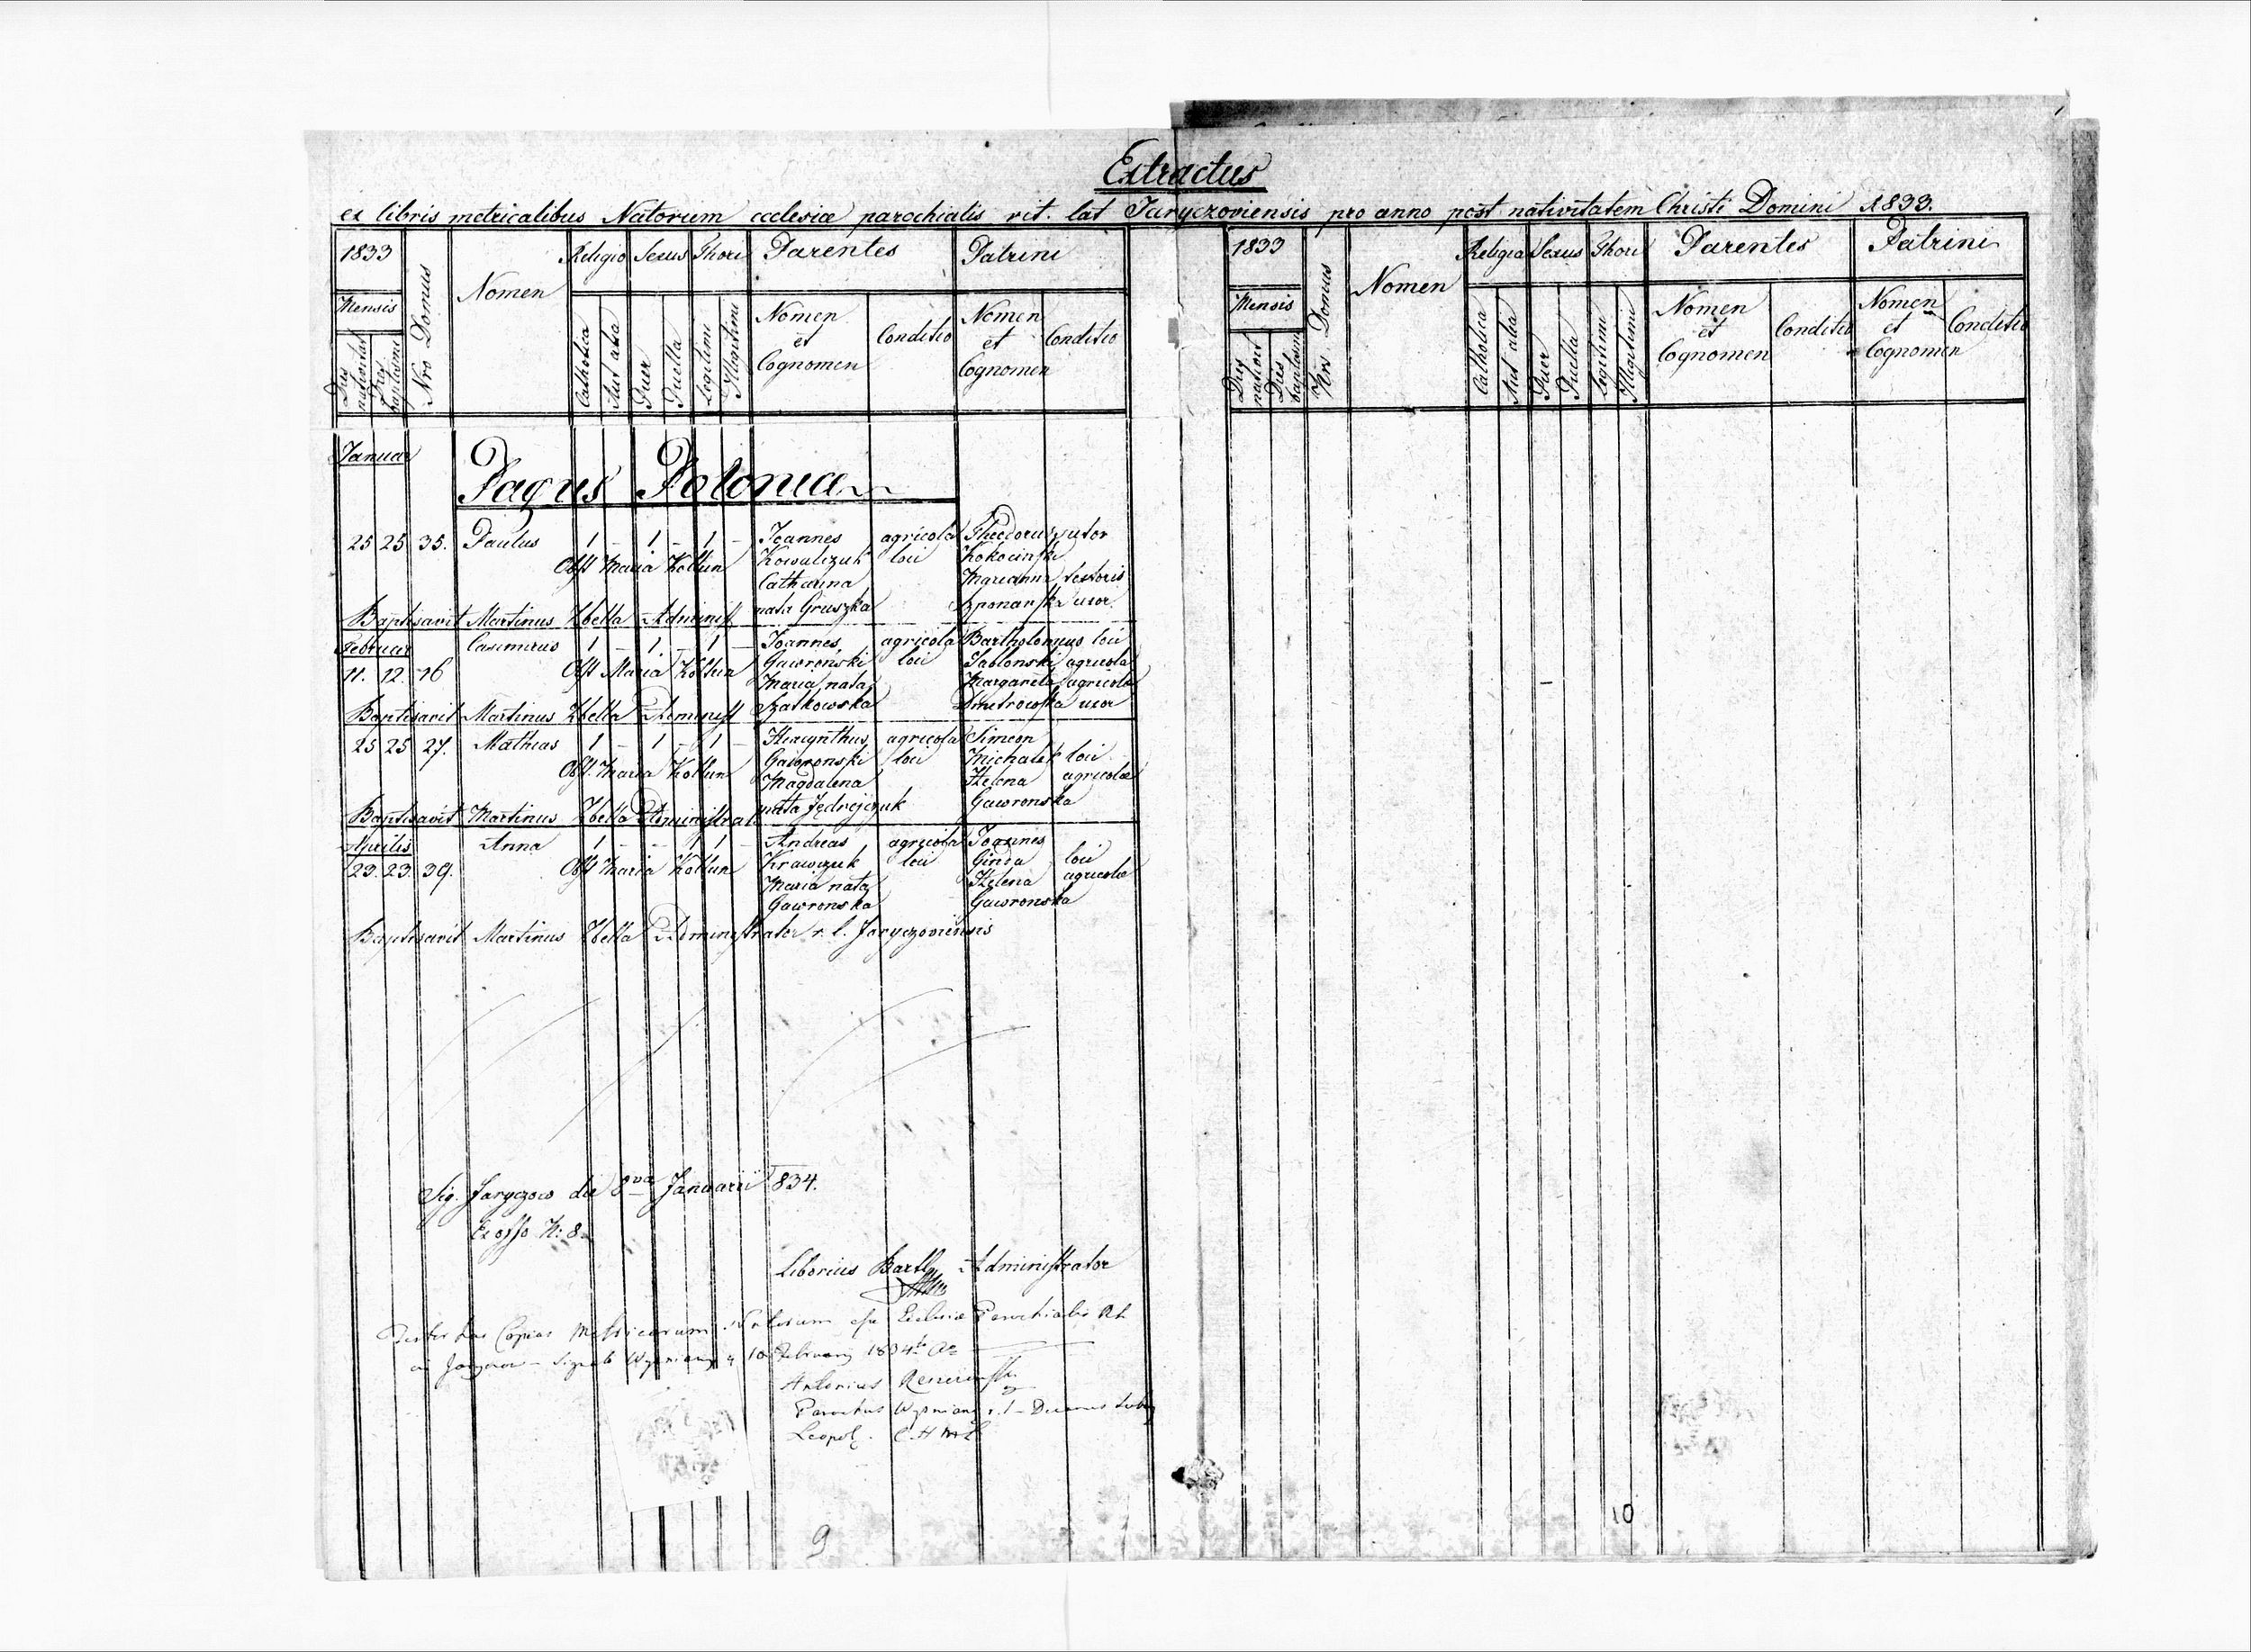 Extractus
ex libris metricalibus Natorum ecclesiæ parochialis rit. lat Jaryczoviensis pro anno post nativitatem Christi Domini 1833.
1833 Nro Domus Nomen Religio Sexus Thori Parentes Patrini
Mensis
Dies nativitat Dies baptismi Catholica Aut alia Puer Puella Legitimi Illegitimi Nomen et Cognomen Conditio Nomen et Cognomen Conditio
Januar
Pagus Polonica
25 25 35. Paulus 1 – 1 – 1 – Joannes agricola Theodorus sutor
Obst Maria Koltun Kowalczuk loci Kokocinski
Catharina Marianna textoris
Baptisavit Martinus Zbella Administ nata Gruszka Szponarska uxor.
Februar Casimirus 1 – 1 – 1 – Joannes agricola Bartholomeus loci
11. 12. 16 Obst Maria Koltun Gawronski loci Jablonski agricola
Maria nata Margareta agricolæ
Baptisavit Martinus Zbella Administ Szatkowska Dmitrowska uxor
25 25 27. Mathias 1 – 1 – 1 – Hiacynthus agricola Simeon
Obst. Maria Koltun Gawronski loci Michalek loci
Magdalena Helena agricolæ
Baptisavit Martinus Zbella Administrat nata Jędrejczuk Gawronska
Aprilis Anna 1 – – 1 1 – Andreas agricola Joannes
23. 23. 39. Obst Maria Koltun Krawczuk loci Ginda loci
Maria nata Helena agricolæ
Gawronska Gawronska
Baptisavit Martinus Zbella Administrator r. l. Jaryczoviensis
Sig. Jaryczow die 8va Januarii 834.
Ex offo N: 8.
Liborius Bartl Administrator
Copias Metricarum Natorum esse Ecclesiæ Parochialis
10 February 1834
Antonius
Parochus r. l.
Leopol.
9
1833 Nro Domus Nomen Religio Sexus Thori Parentes Patrini
Mensis
Dies nativit Dies baptismi Catholica Aut alia Puer Puella Legitimi Illegitimi Nomen et Cognomen Conditio Nomen et Cognomen Conditio
10